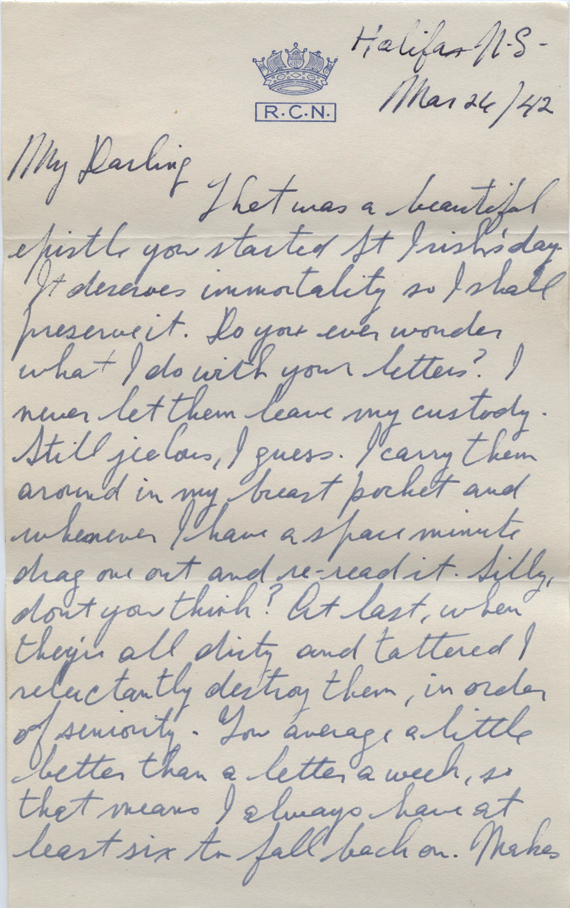 Halifax N.S-
Mar 26/42
R.C.N.
My Darling
That was a beautiful
epistle you started St Irish's day.
It deserves immortality so I shall
preserve it. Do you ever wonder
what I do with your letters? I
never let them leave my custody.
Still jealous, I guess. I carry them
around in my breast pocket and
whenever I have a spare minute
drag one out and re-read it. Silly,
dont you think? At last, when
they're all dirty and tattered I
reluctantly destroy them, in order
of seniority. You average a little
better than a letter a week, so
that means I always have at
least six to fall back on. Makes